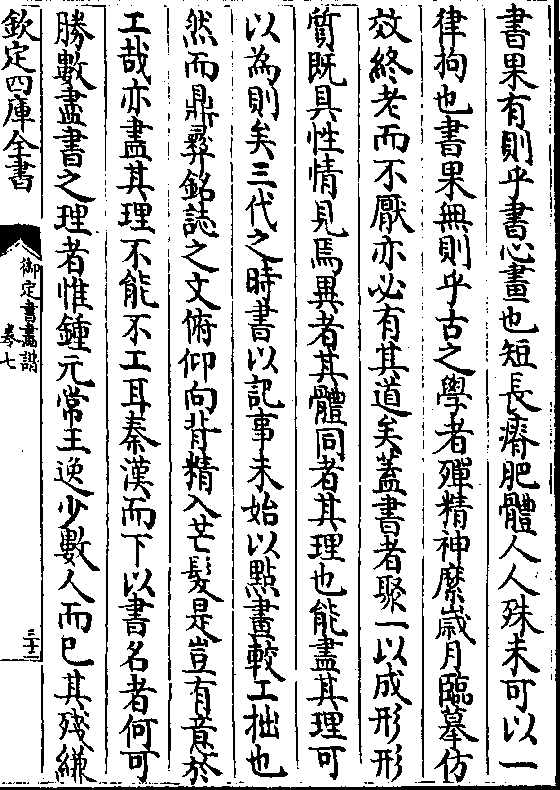 書果有則乎書心畫也短長瘠肥體人人殊未可以一
律拘也書果無則乎古之學者殫精神縻歲月臨摹仿
效終老而不厭亦必有其道矣蓋書者聚一以成形形
質既具性情見焉異者其體同者其理也能盡其理可
以為則矣三代之時書以記事未始以點畫較工拙也
然而鼎彞銘誌之文俯仰向背精入芒髮是豈有意於
工哉亦盡其理不能不工耳秦漢而下以書名者何可
勝數盡書之理者惟鍾元常王逸少數人而已其殘縑
欽定四庫全書
御定書畫譜
卷七
三十二